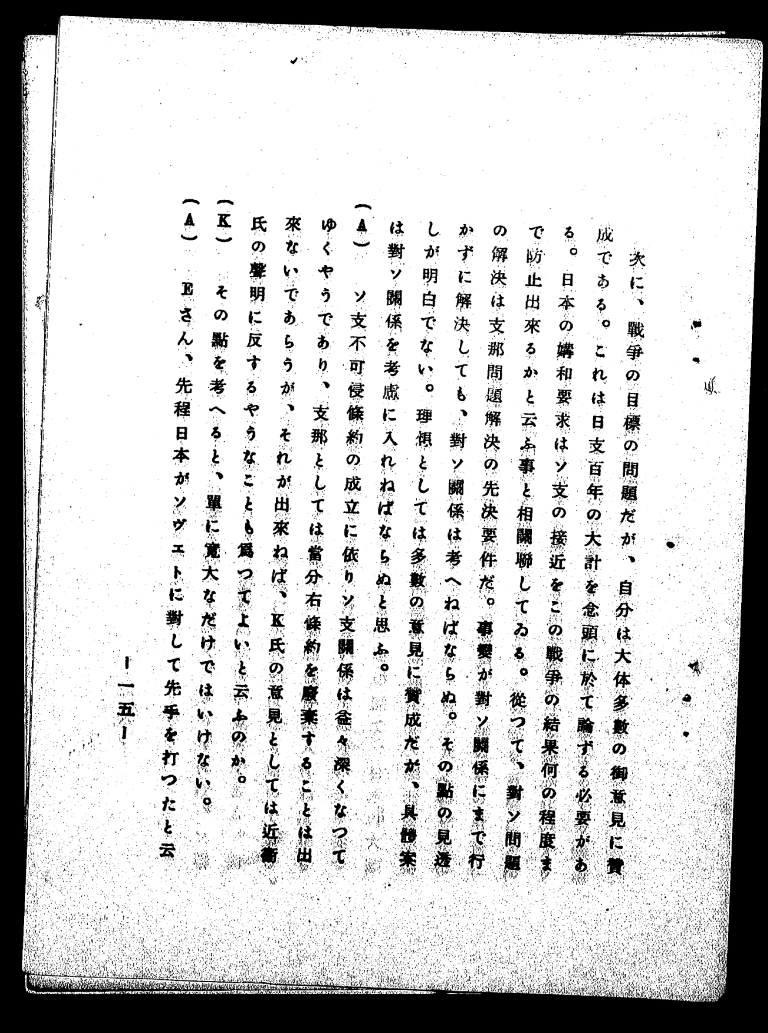 次に、戰爭の目標の問題だが、自分は大体多數の御意見に贊
成である。これは日支百年の大計を念頭に於て論ずる必要があ
る。日本の媾和要求はソ支の接近をこの戰爭の結果何の程度ま
で防止出來るかと云ふ事と相關聯してゐる。從つて、對ソ問題
の解決は支那問題解決の先決要件だ。事變が對ソ關係にまで行
かずに解決しても、對ソ關係は考へねばならぬ。その點の見透
しが明白でない。理想としては多數の意見に贊成だが、具體案
は對ソ關係を考慮に入れねばならぬと思ふ。
（A）　ソ支不可侵條約の成立に依りソ支關係は益々深くなつて
ゆくやうであり、支那としては當分右條約を廢棄することは出
來ないであらうが、それが出來ねば、K氏の意見としては近衞
氏の聲明に反するやうなことも爲つてよいと云ふのか。
（K）　その點を考へると、單に寬大なだけではいけない。
（A）　Eさん、先程日本がソヴエトに對して先手を打つたと云
―一五―